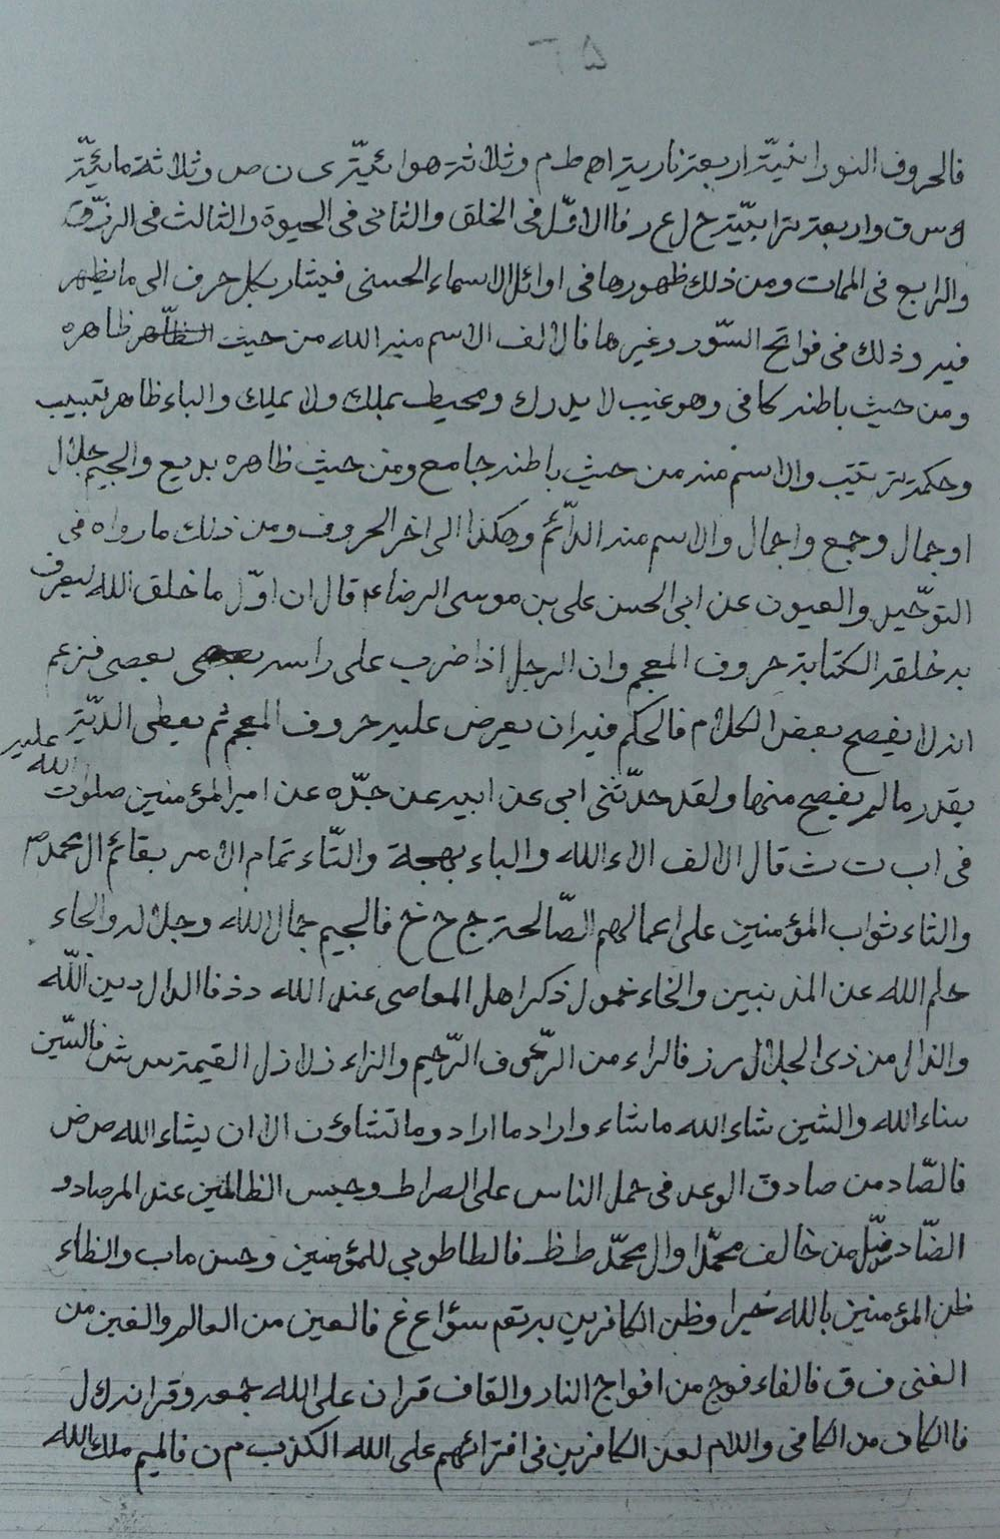 ۵۳
فالحروف النورانیّة اربعة ناریة اه ط م وثلاثة هوائیّة ی ن ص وثلاثة مائیّة
ك س ق واربعة ترابیّة ح ل ع ر فالاوّل فی الخلق والثانی فی الحیوة والثالث فی الرزق
والرابع فی الممات ومن ذلك ظهورها فی اوائل الاسماء الحسنی فیشار بكل حرف الی ما یظهر
فیه وذلك فی فواتح السّور وغیرها فالالف الاسم منه الله من حیث الظّاهر ظاهره
ومن حیث باطنه كافی وهو غیب لا یدرك ومحیط یملك ولا یملیك والباء ظاهر بتسبیب
وحكمة ترتیب والاسم منه من حیث باطنه جامع ومن حیث ظاهره بدیع والجیم جلال
او جمال وجمع واجمال والاسم منه الدّائم وهكذا الی اخر الحروف ومن ذلك ما رواه فی
التوحّید والعیون عن ابی الحسن علی بن موسی الرضا ع قال ان اوّل ما خلق الله لیعرف
به خلقه الكتابة حروف المعجم وان الرجل اذا ضرب علی راسه بعصی فزعم
انه لا یفصح ببعض الكلام فالحكم فیه ان یعرض علیه حروف المعجم ثم یعطی الدّیة
بقدر ما لم یفصح منها ولقد حدّثنی ابی عن ابیه عن جدّه عن امیر المؤمنین صلوات الله علیه
فی ا ب ت ث قال الالف الاء الله والباء بهجة والتّاء تمام الامر بقائم ال محمد ص
والثاء ثواب المؤمنین علی اعمالهم الصّالحة ج ح خ فالجیم جمال الله وجلاله والحاء
حلم الله عن المذنبین والخاء خمول ذكر اهل المعاصی عند الله د ذ فالدال دین الله
والذال من ذی الجلال ر ز فالراء من الرّءوف الرّحیم والزاء زلازل القیمة س ش فالسّین
سناء الله والشین شاء الله ما شاء واراد ما اراد وما تشاؤن الا ان یشاء الله ص ض
فالصّاد من صادق الوعد فی حمل الناس علی الصراط وحبس الظالمین عند المرصاد و
الضّاد ضلّ من خالف محمّدا وال محمّد ط ظ فالطا طوبی للمؤمنین وحسن ماب والظاء
ظن المؤمنین بالله خیرا وظن الكافرین به سؤا ع غ فالعین من العالم والغین من
الغنی ف ق فالفاء فوج من افواج النار والقاف قران علی الله جمعه وقرانه ك ل
فالكاف من الكافی واللام لعن الكافرین فی افترائهم علی الله الكذب م ن فالمیم ملك الله